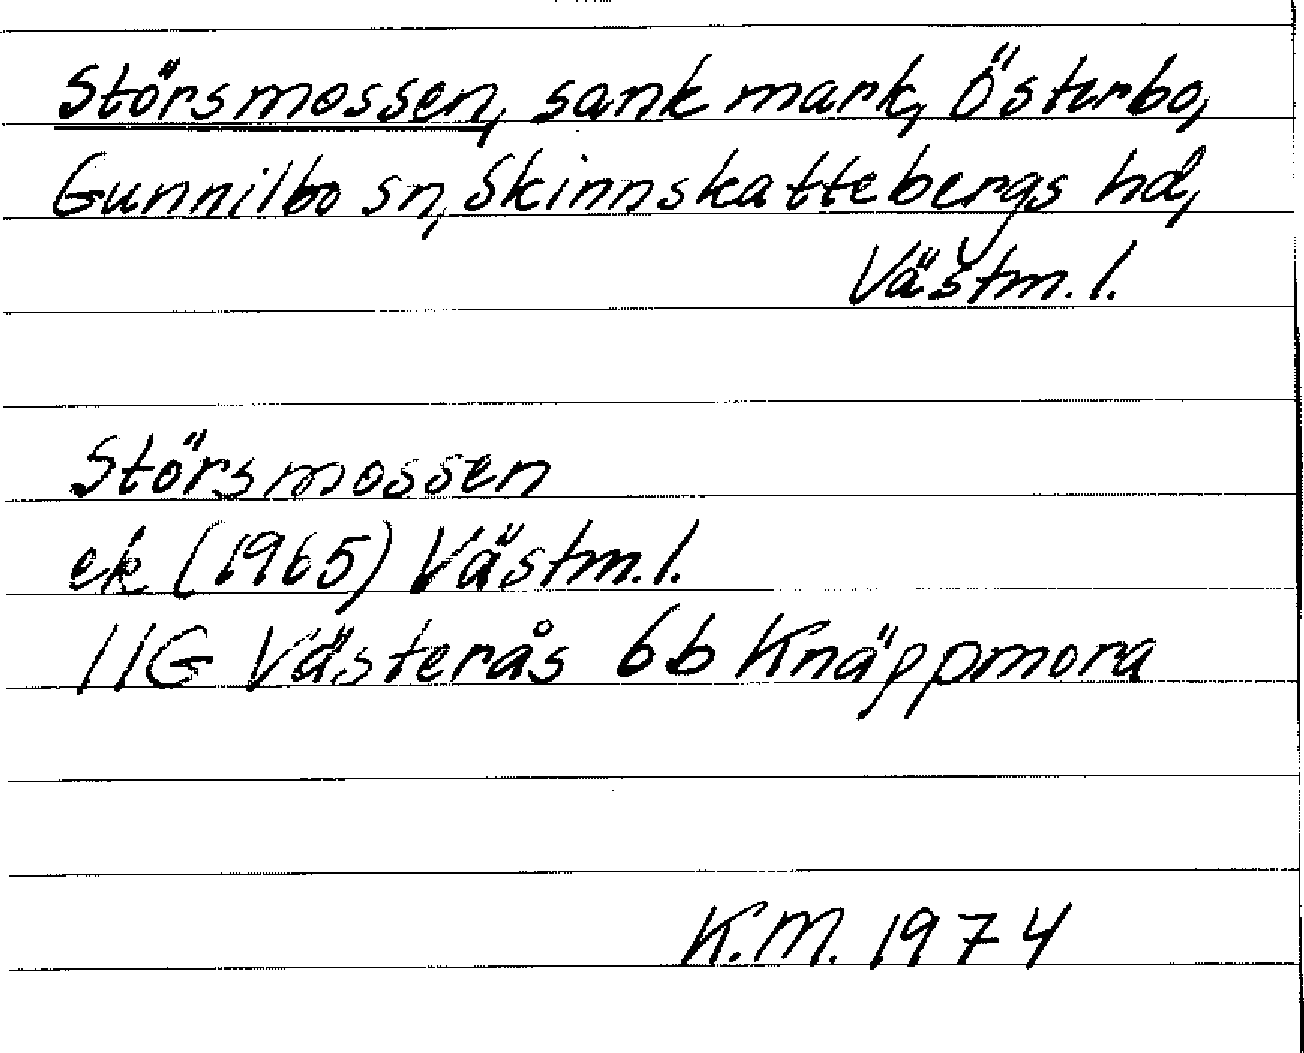 Störsmossen, sank mark, Österbo,
Gunnilbo sn, Skinnskattebergs hd,
Västm. l.
Störsmossen
ek (1965) Västm. l.
11G Västerås 6b Knäppmora
K.M. 1974